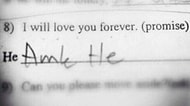 8) I will love you forever. (promise)
He Amle He
9) Can you please